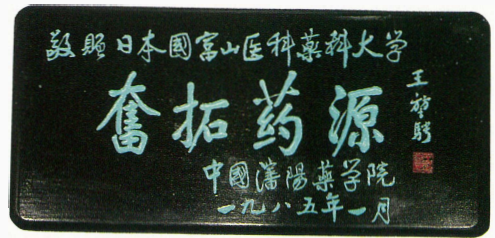 敬赠日本國富山医科薬科大学
奮拓药源
中國瀋陽藥学院
一九八五年一月